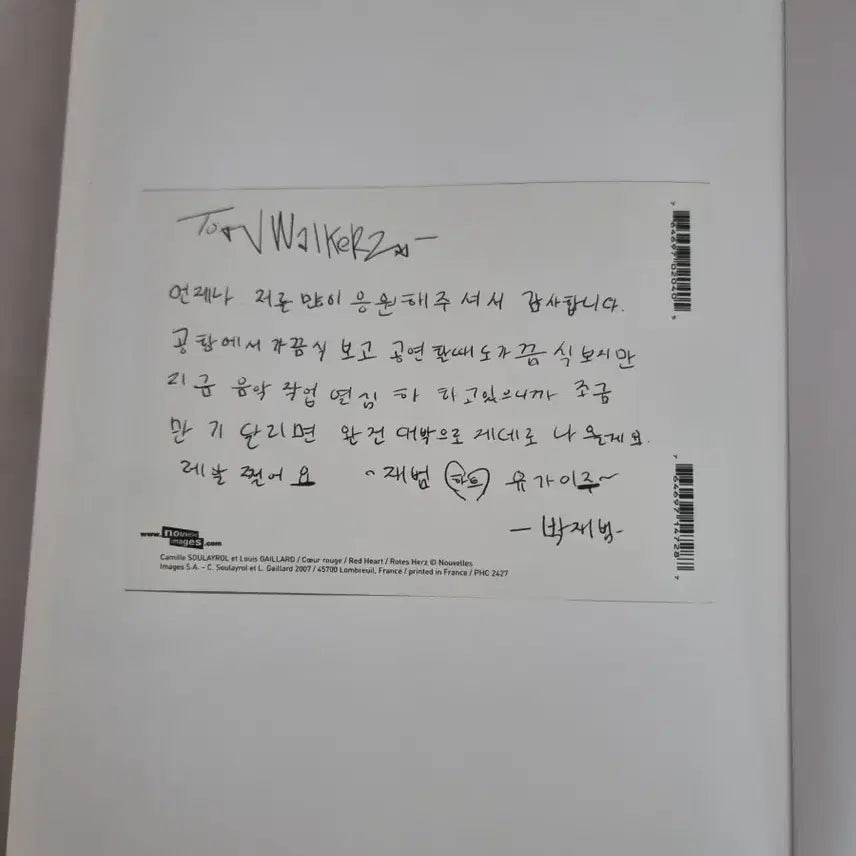 To Jay Walkerz -
언제나 저를 많이 응원해주셔서 감사합니다.
공항에서 가끔식 보고 공연 할때도 가끔 식 보지만
지금 음악 작업 열심 하 하고있으니까 조금
만 기 달리면 완전 대박으로 제데로 나 올게요.
레벨 쩔어요 ~재범 하트 유가이주~
- 박재범 -
www.nouvelles images.com
Camille SOULAYROL et Louis GAILLARD / Cœur rouge / Red Heart / Rotes Herz © Nouvelles
Images S.A. - C. Soulayrol et L. Gaillard 2007 / 45700 Lombreuil, France / printed in France / PHC 2427